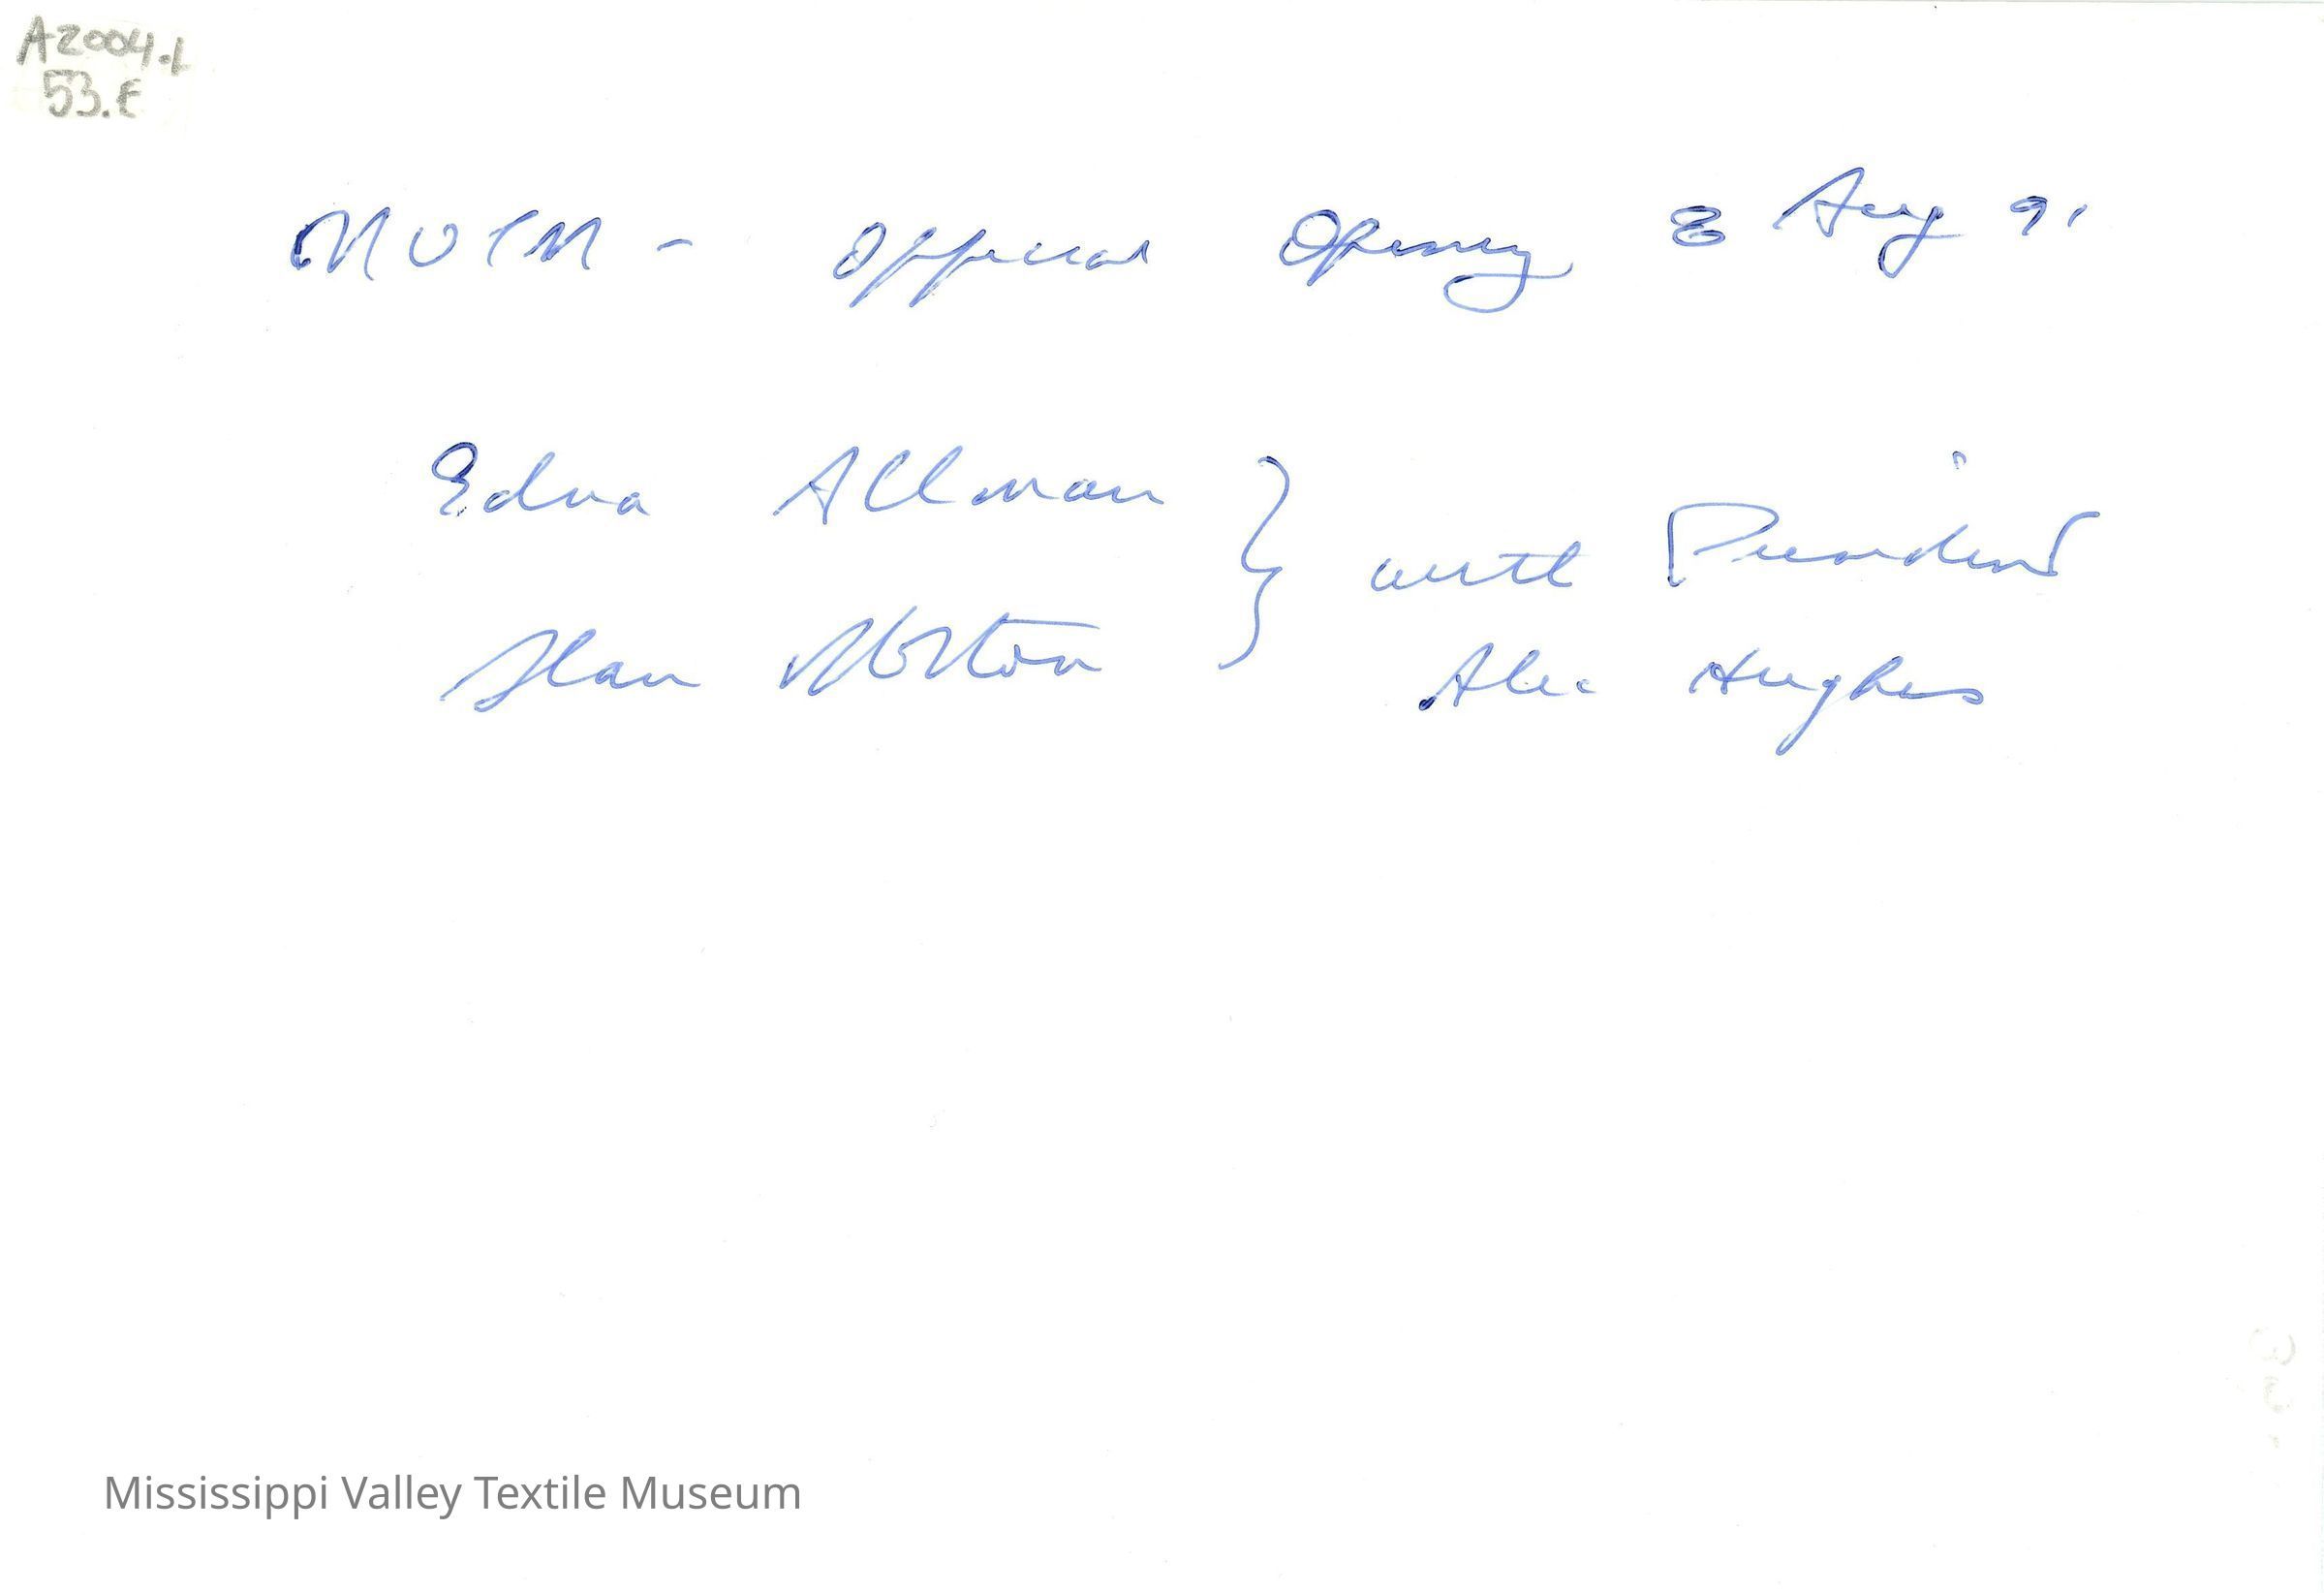 A2004.1
53.E
MVTM - Official Opening 3 Aug 91
Edna Allman
Alan Norton
} with President
Alec Hughes
Mississippi Valley Textile Museum